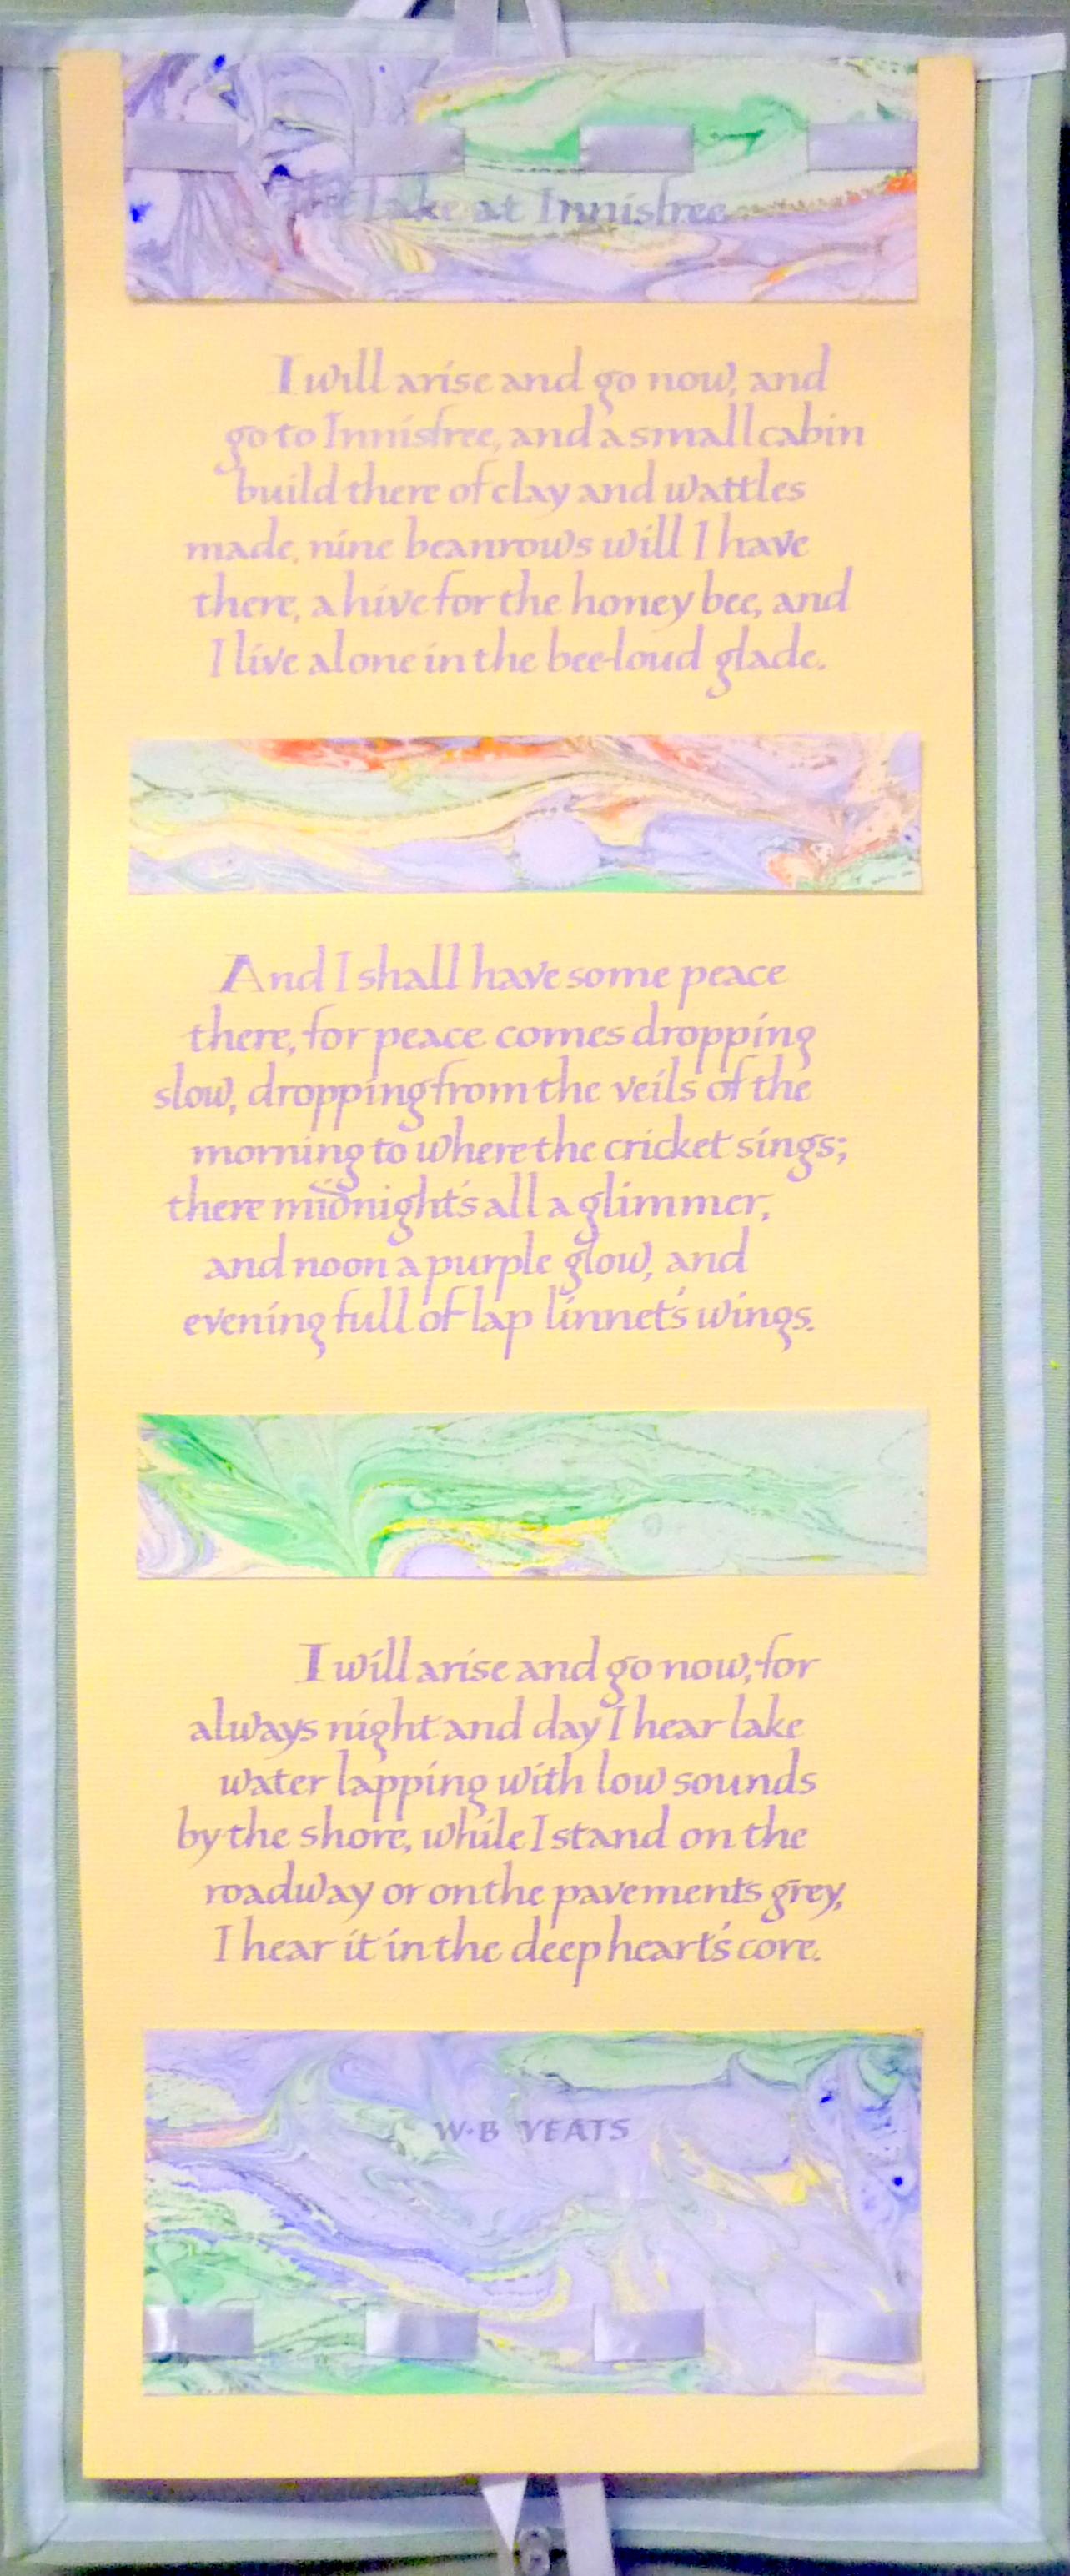 The Lake at Innisfree
I will arise and go now, and
go to Innisfree, and a small cabin
build there of clay and wattles
made, nine beanrows will I have
there, a hive for the honey bee, and
I live alone in the bee-loud glade.
And I shall have some peace
there, for peace comes dropping
slow, dropping from the veils of the
morning to where the cricket sings;
there midnight's all a glimmer,
and noon a purple glow, and
evening full of lap linnet's wings.
I will arise and go now, for
always night and day I hear lake
water lapping with low sounds
by the shore, while I stand on the
roadway or on the pavements grey,
I hear it in the deep heart's core.
W·B YEATS